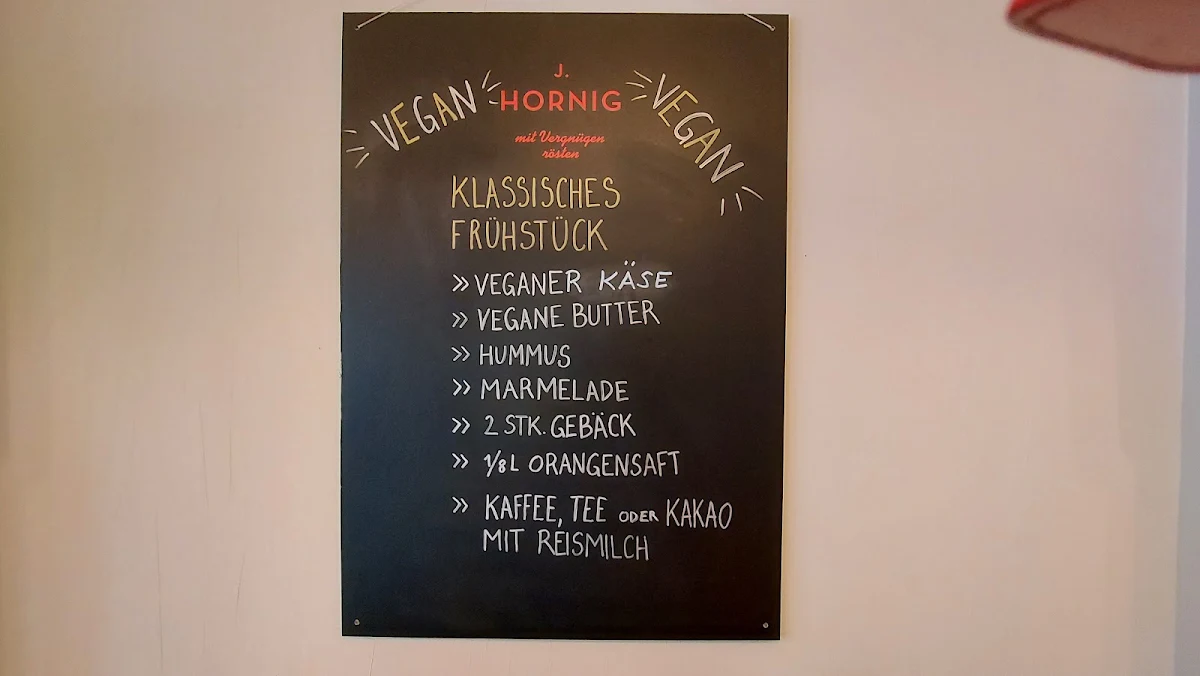 VEGAN
J.
HORNIG
VEGAN
mit Vergnügen
rösten
KLASSISCHES
FRÜHSTÜCK
» VEGANER KÄSE
» VEGANE BUTTER
» HUMMUS
» MARMELADE
» 2 STK. GEBÄCK
» 1/8 L ORANGENSAFT
» KAFFEE, TEE ODER KAKAO
MIT REISMILCH